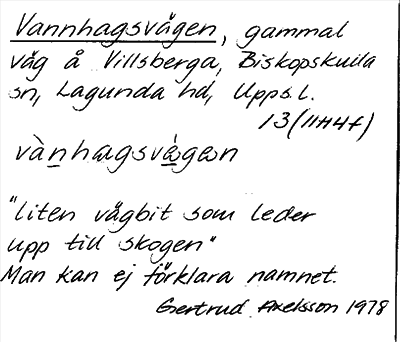 Vannhagsvägen, gammal
väg å Villsberga, Biskopskulla
sn, Lagunda hd, Upps.l.
13 (11H4f)
vànhagsvægen
"liten vägbit som leder
upp till skogen"
Man kan ej förklara namnet.
Gertrud Axelsson 1978